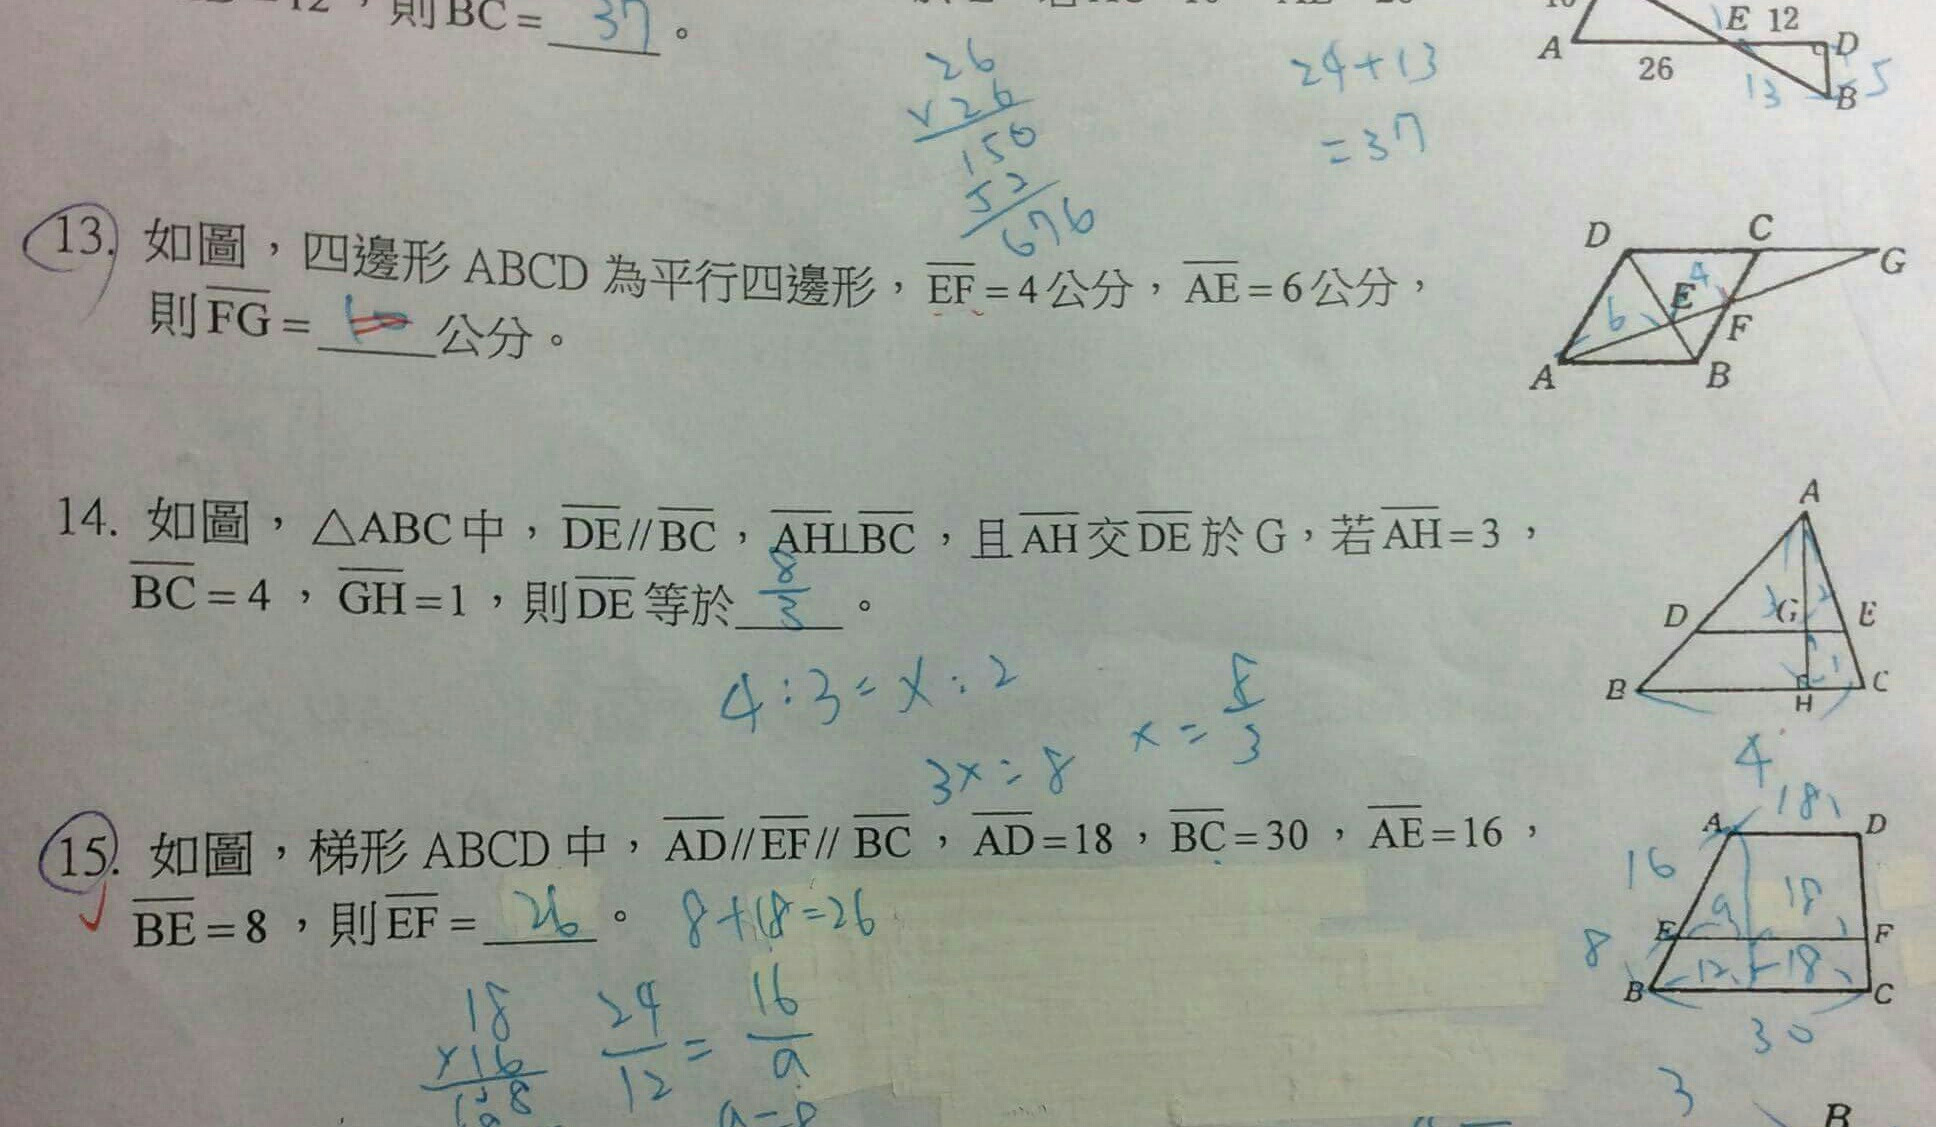 12，則BC=37。
26
×26
150
52
676
24+13
=37
A 26 E 12 D
13 B 5
13. 如圖，四邊形 ABCD 為平行四邊形，EF=4公分，AE=6公分，
則FG= 公分。
D C G
4
6 E F
A B
14. 如圖，△ABC中，DE//BC，AH⊥BC，且AH交DE於G，若AH=3，
BC=4，GH=1，則DE等於 8/3 。
4:3=x:2
3x=8
x=8/3
A
D G 2 E
1
B H C
4
15. 如圖，梯形 ABCD 中，AD//EF//BC，AD=18，BC=30，AE=16，
BE=8，則EF=26。 8+18=26
18
×16
24/12=16/a
18
A D
16
a 18
8 E F
12 18
B C
30
3
B